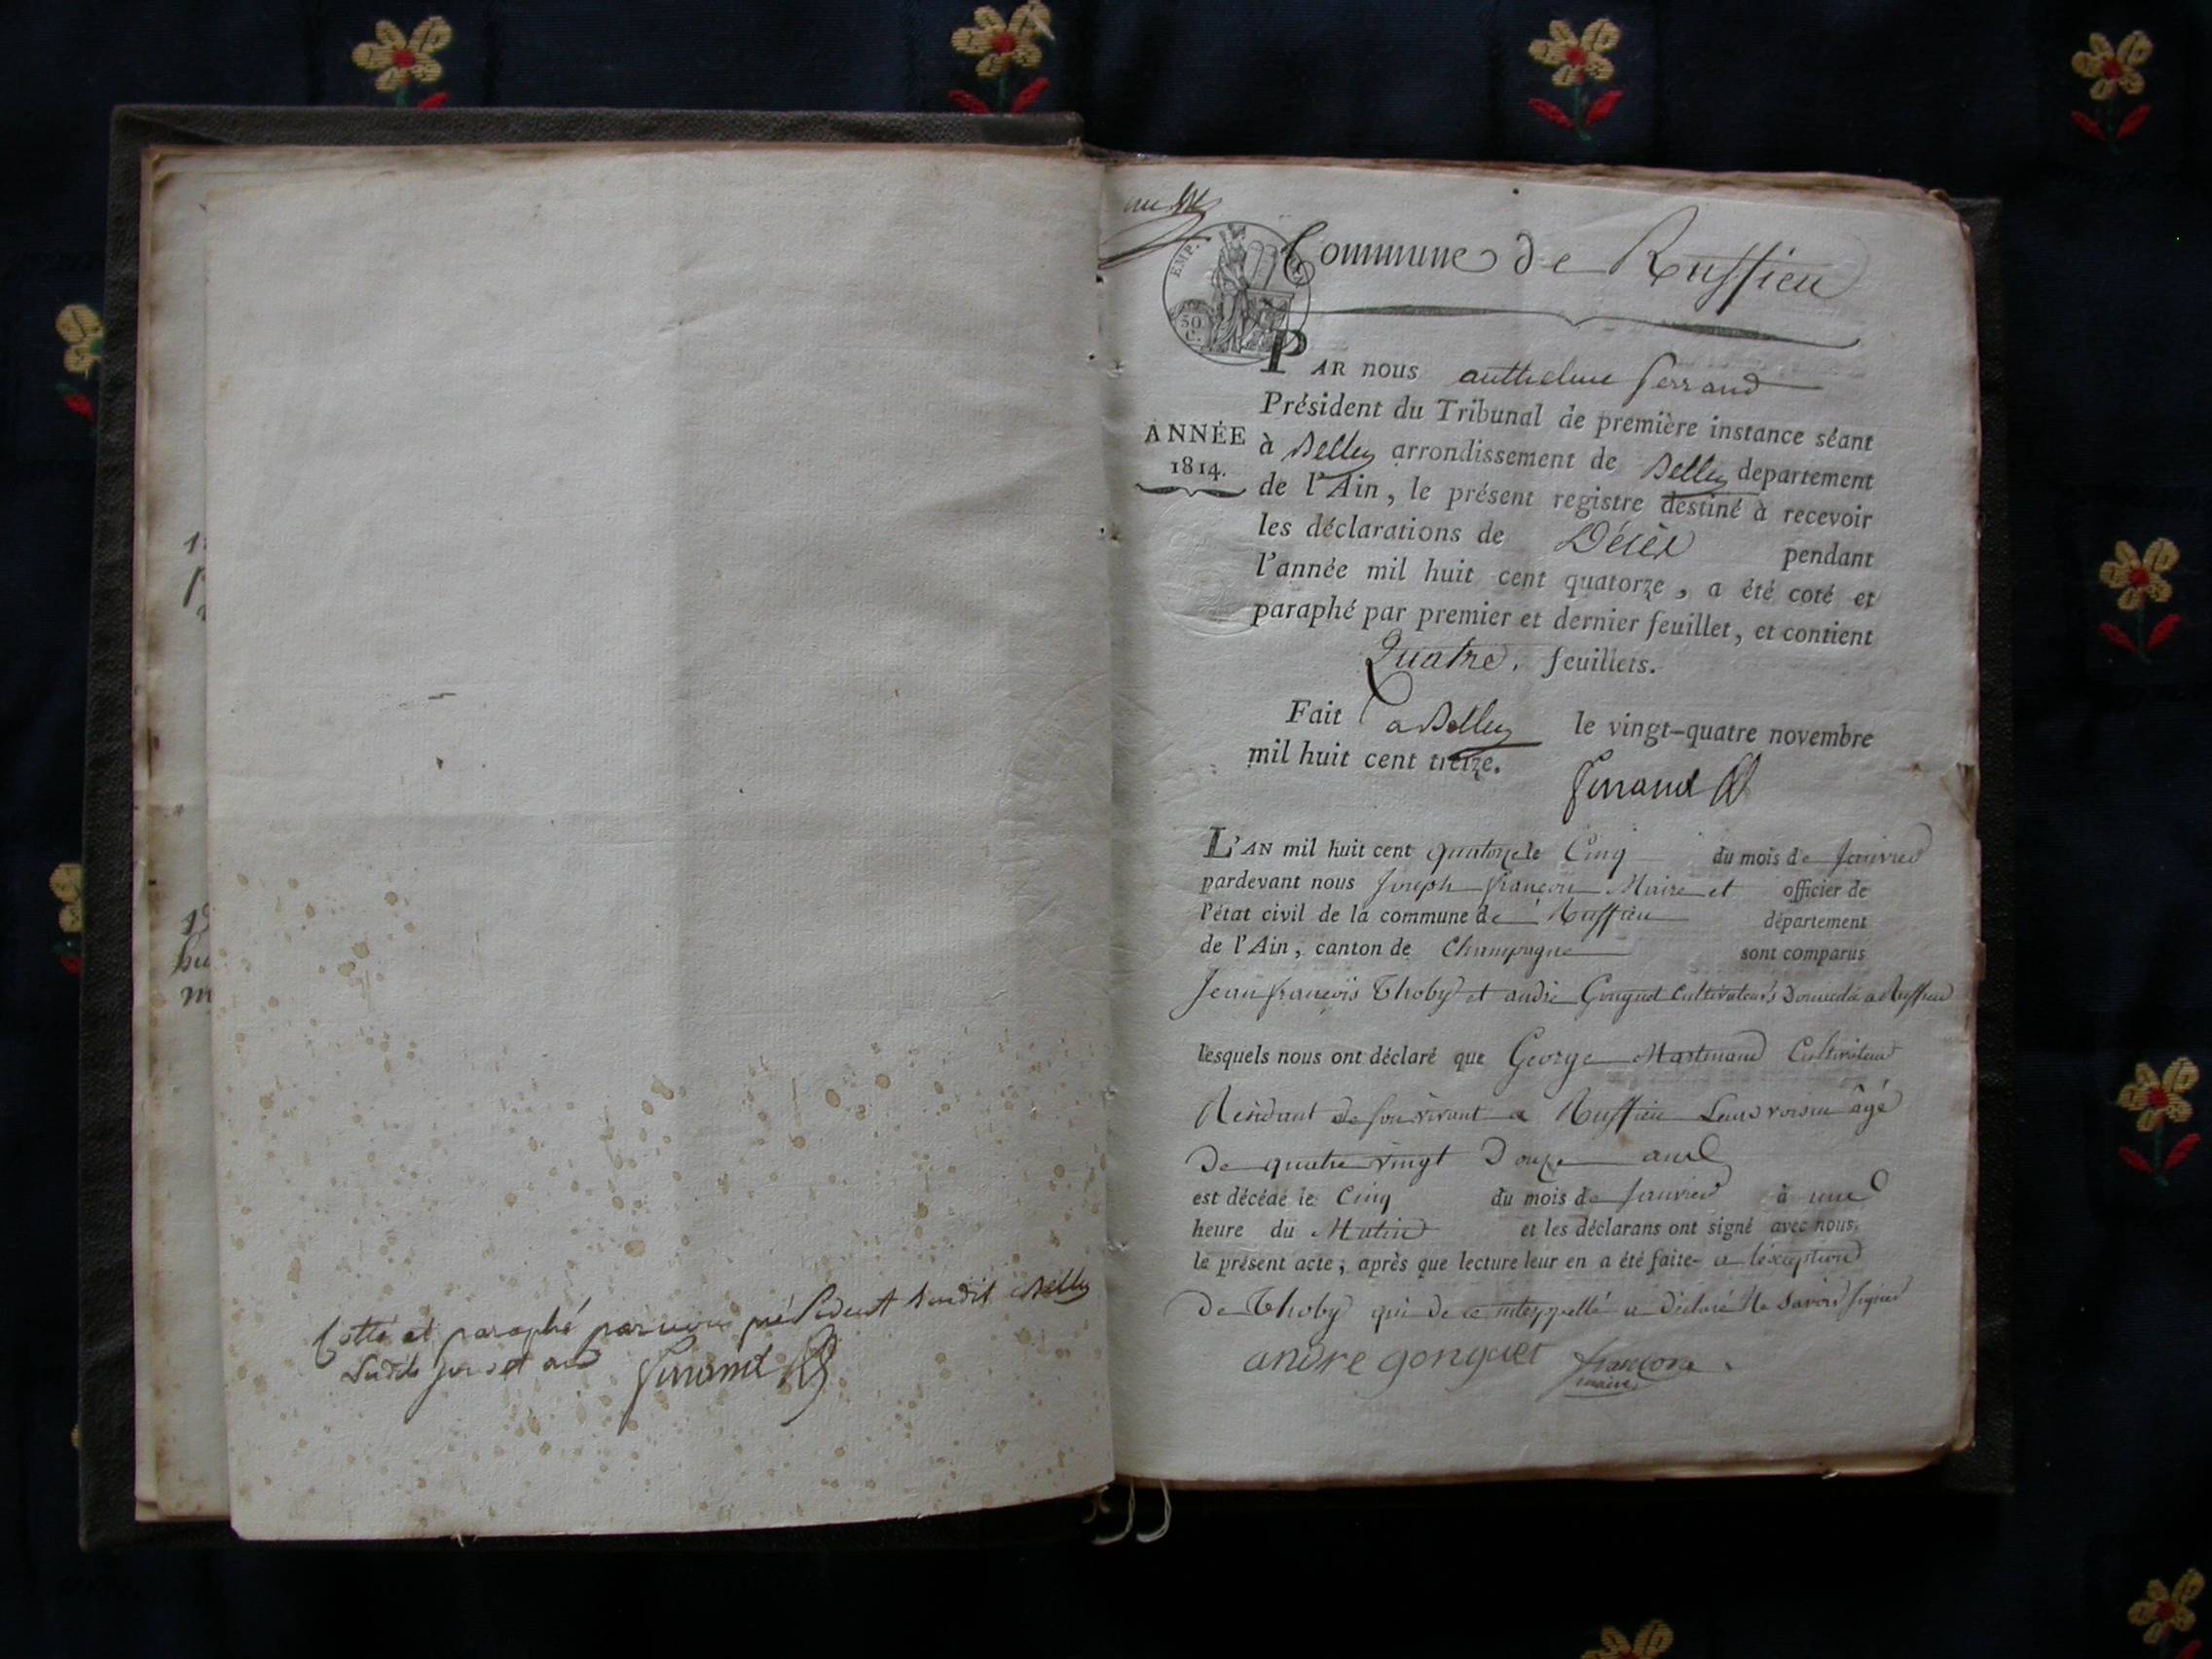 Cotté et paraphé par nous président susdit Belley
Susdits jour et an Ferrand
Commune de Ruffieu
EMP.
50
C.
PAR nous anthelme ferrand
Président du Tribunal de première instance séant
ANNÉE
1814.
à Belley arrondissement de Belley departement
de l'Ain, le présent registre destiné à recevoir
les déclarations de Décès pendant
l'année mil huit cent quatorze, a été coté et
paraphé par premier et dernier feuillet, et contient
Quatre. feuillets.
Fait a Belley le vingt-quatre novembre
mil huit cent treize.
Ferrand
L'AN mil huit cent quatorze le Cinq du mois de Janvier
pardevant nous Joseph françon Maire et officier de
l'état civil de la commune de Ruffieu département
de l'Ain, canton de Champagne sont comparus
Jean françois Thoby et andré Gonguet Cultivateurs Domicilié a Ruffieu
lesquels nous ont déclaré que George Martinand Cultivateur
Résidant de son vivant a Ruffieu Leur voisin âgé
De quatre vingt Douze ans
est décédé le Cinq du mois de Janvier à une
heure du Matin et les déclarans ont signé avec nous,
le présent acte, après que lecture leur en a été faite a l'exception
De Thoby qui de ce interpellé a déclaré Ne savoir signer
andre gonguet françon
maire